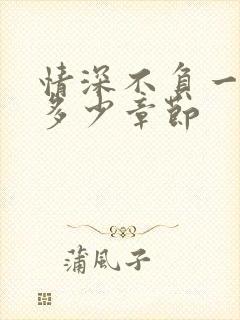 情深不負一
多少章節
蒲風子